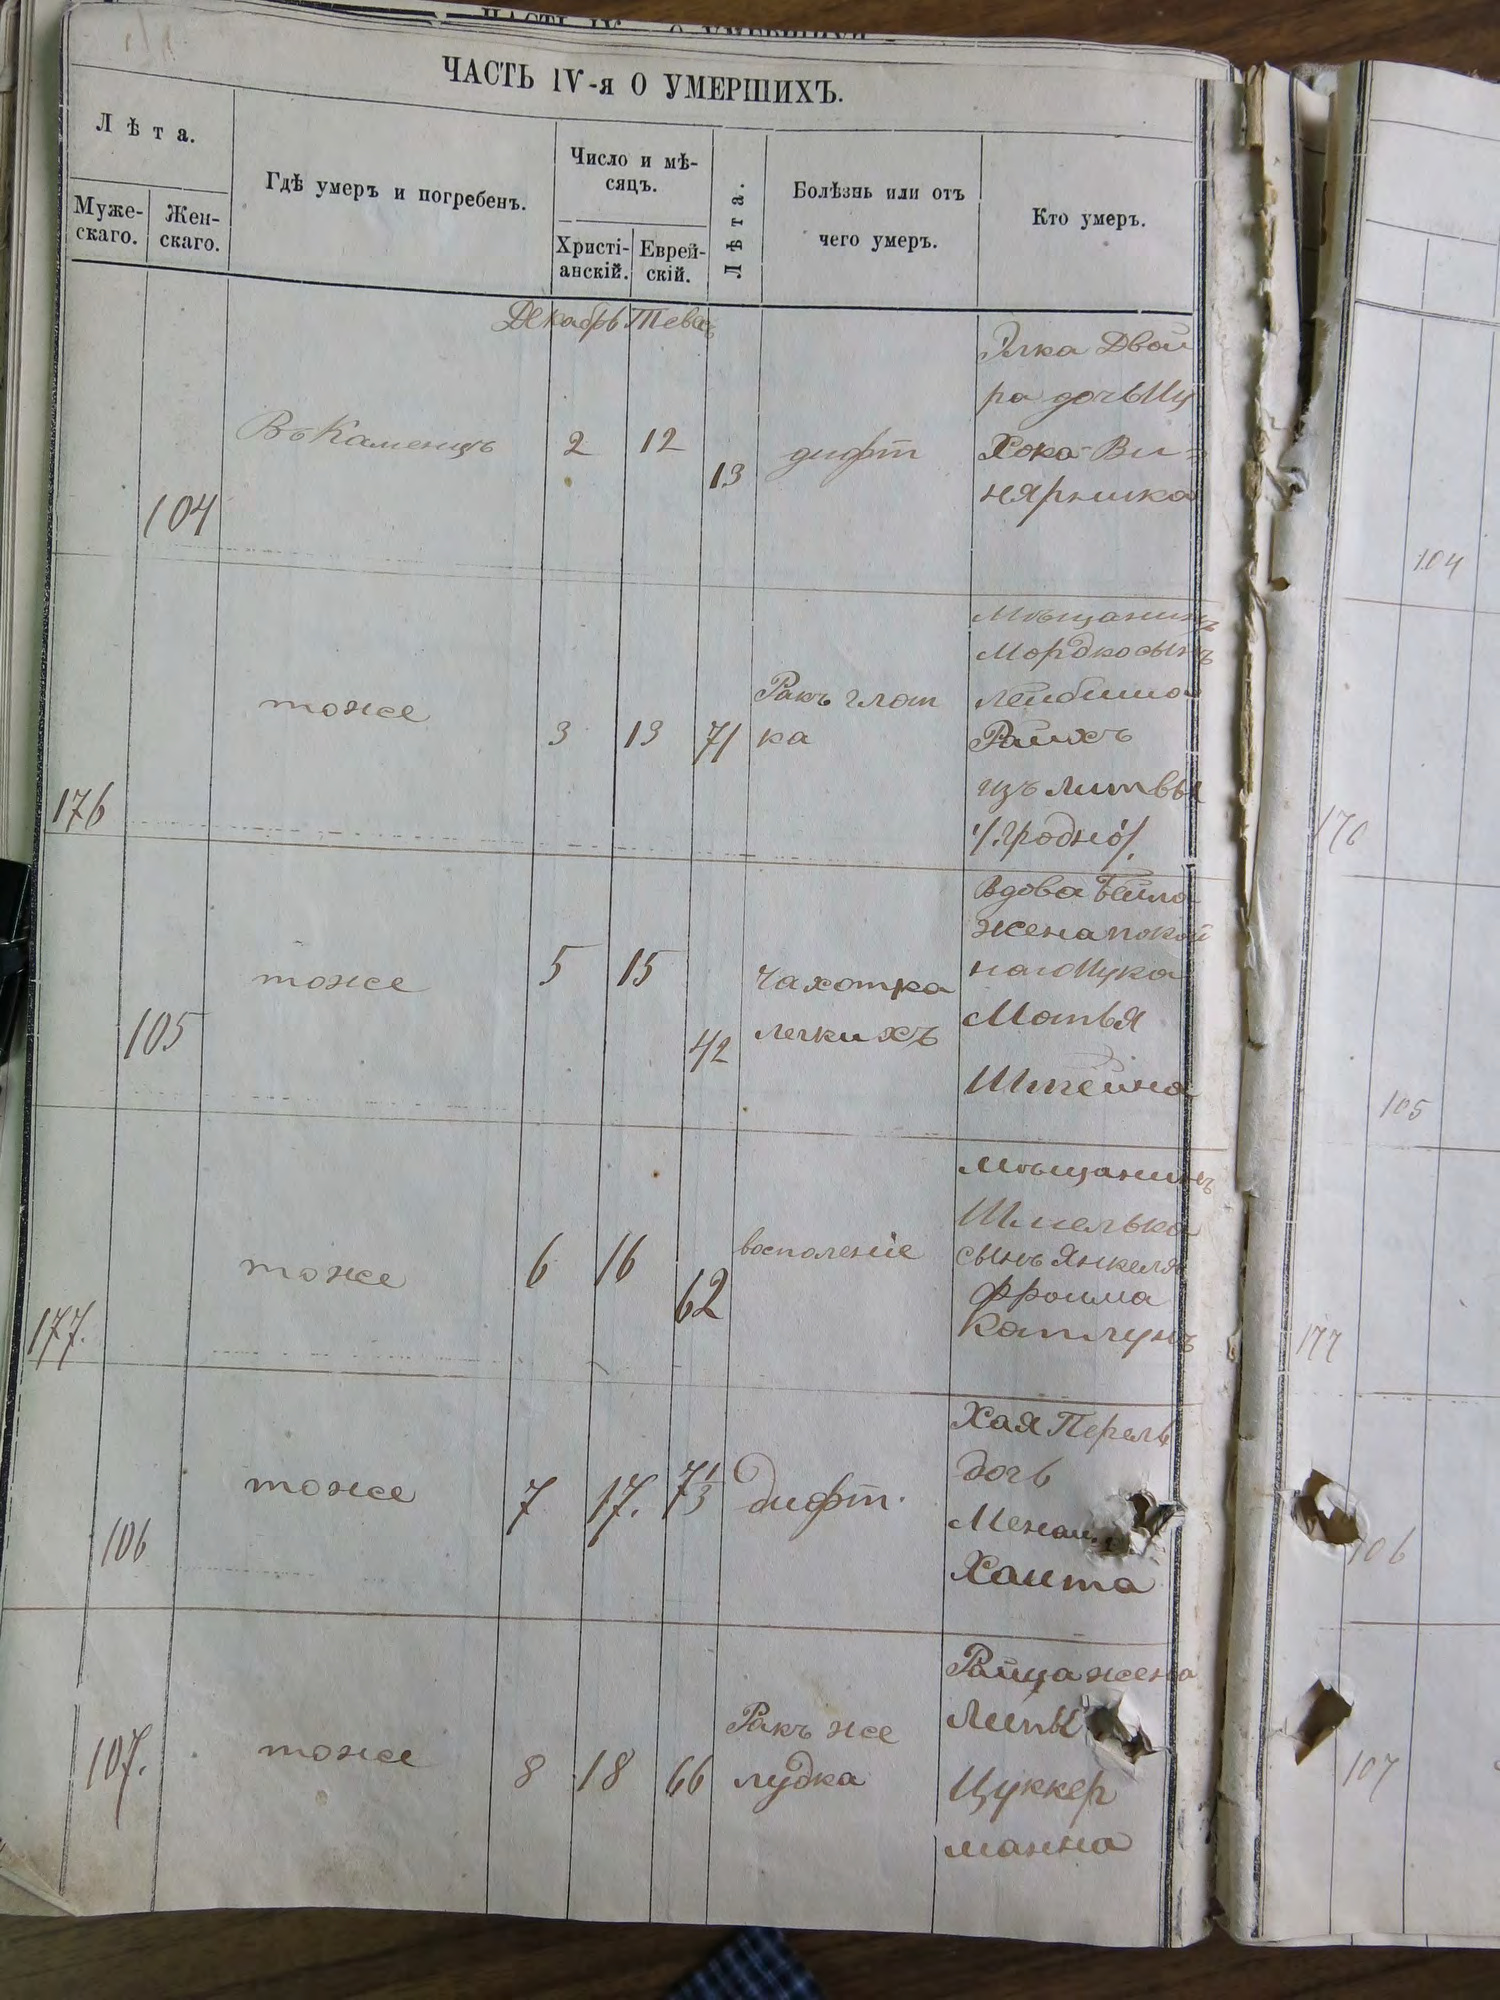 ЧАСТЬ IV-я О УМЕРШИХЪ.
Лѣта.
Муже-
скаго.
Жен-
скаго.
Гдѣ умеръ и погребенъ.
Число и мѣ-
сяцъ.
Христі-
анскій.
Еврей-
скій.
Лѣта.
Болѣзнь или отъ
чего умеръ.
Кто умеръ.
Декабрь Теве
104
Въ Каменцѣ
2
12
13
дифт
Элка Двой
ра дочь Иц
Хока Ви=
нярника
104
176
тоже
3
13
71
Ракъ глот
ка
Мѣщанинъ
Мордко сынъ
Лейбиша
Райхъ
изъ Литвы
/.Гродно/.
176
105
тоже
5
15
42
Чахотка
легкихъ
Вдова Бейла
жена покой
наго Ицка
Матья
Штейна
105
177.
тоже
6
16
62
восполеніе
Мѣщанинъ
Шмелька
сынъ Янкеля
Фроима
177
106
тоже
7
17.
7 1/3
Дифт.
Хая Перель
дочь
Хаита
106
107.
тоже
8
18
66
Ракъ же
лудка
Райца жена
Липы
Цуккер
манна
107